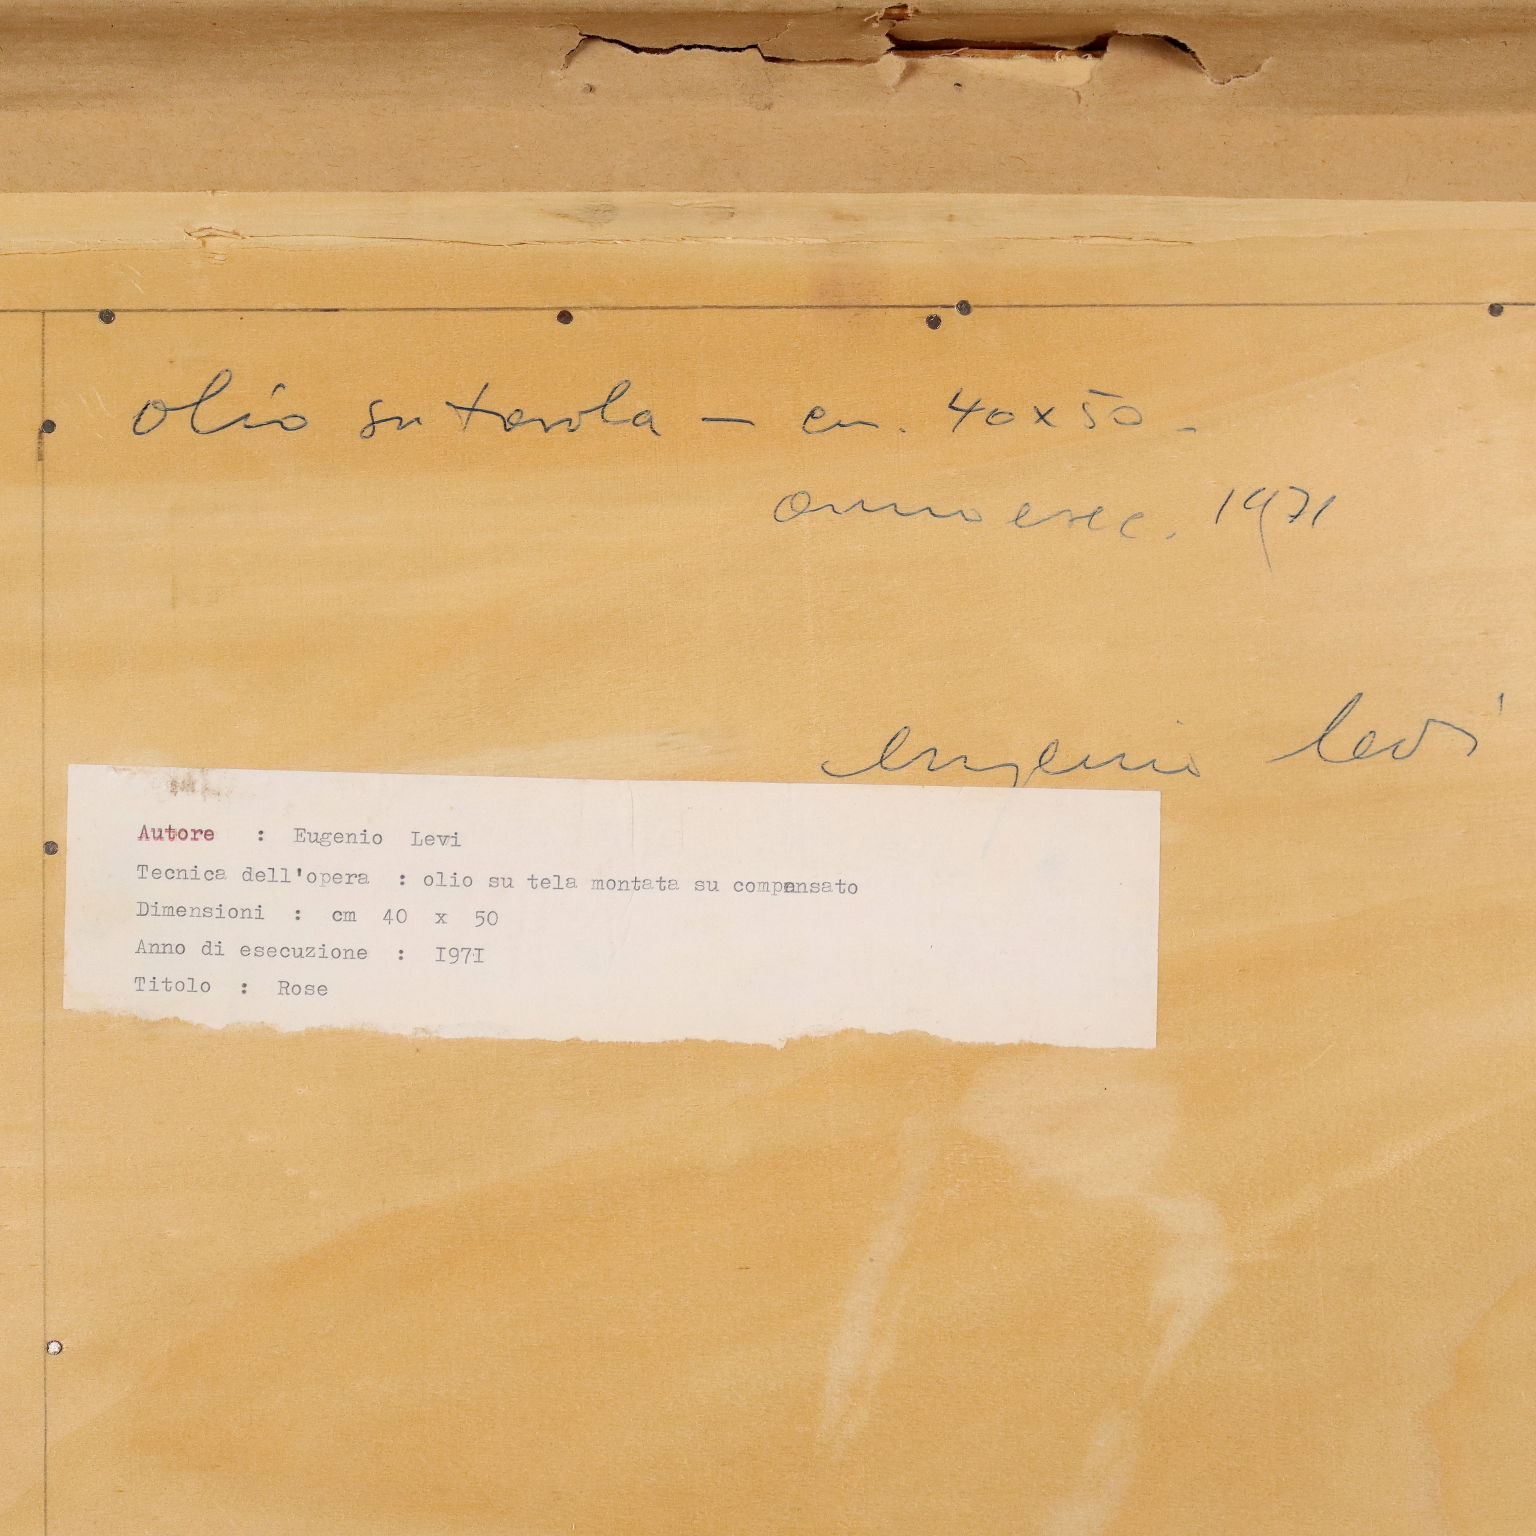 olio su tavola — cm. 40x50 -
anno esec. 1971
eugenio levi
Autore : Eugenio Levi
Tecnica dell'opera : olio su tela montata su compensato
Dimensioni : cm 40 x 50
Anno di esecuzione : I97I
Titolo : Rose